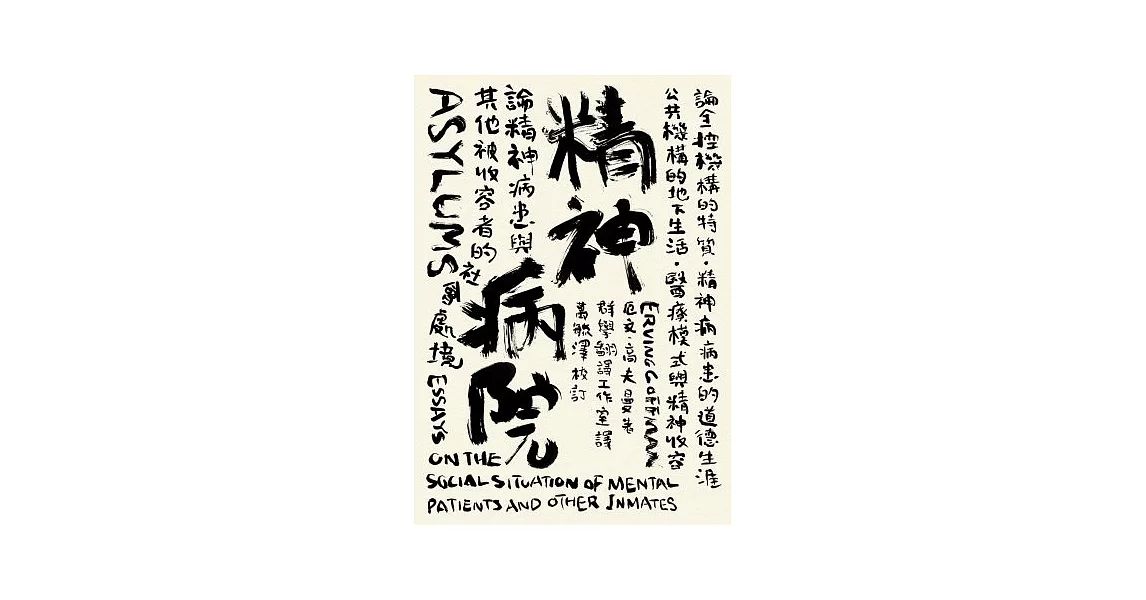 論全控機構的特質・精神病病患的道德生涯
公共機構的地下生活・醫療模式與精神收容
ERVING GOFFMAN
厄文・高夫曼 著
群學翻譯工作室 譯
萬毓澤 校訂
精神病院
論精神病患與
其他被收容者的社會處境
ASYLUMS
ESSAYS
ON THE
SOCIAL SITUATION OF MENTAL
PATIENTS AND OTHER INMATES